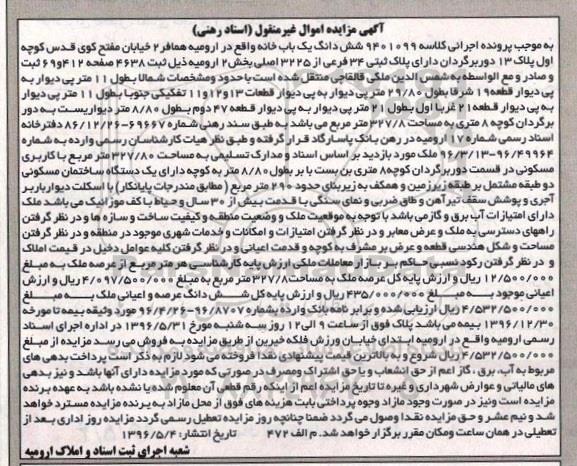 آگهی مزایده اموال غیرمنقول (اسناد رهنی)
به موجب پرونده اجرائی کلاسه ۹۴۰۱۰۹۹ شش دانگ یک باب خانه واقع در ارومیه همافر ۲ خیابان مفتح کوی قدس کوچه
اول پلاک ۱۳ دوربرگردان دارای پلاک ثبتی ۳۴ فرعی از ۳۲۲۵ اصلی بخش ۲ ارومیه ذیل ثبت ۴۶۳۸ صفحه ۴۱۲و۶۹ ثبت
و صادر و مع الواسطه به شمس الدین ملکی قالقاچی منتقل شده است با حدود ومشخصات شمالا بطول ۱۱ متر پی دیوار به
پی دیوار قطعه۱۹ شرقا بطول ۲۹/۸۰ متر پی دیوار به پی دیوار قطعات ۱۳و۱۲و۱۱ تفکیکی جنوبا بطول ۱۱ متر پی دیوار
به پی دیوار قطعه۲۱ غربا اول بطول ۲۱ متر پی دیوار به پی دیوار قطعه ۴۷ دوم بطول ۸/۸۰ متر دیواریست به دور
برگردان کوچه ۸ متری به مساحت ۳۲۷/۸ متر مربع می باشد به طبق سند رهنی شماره ۶۹۶۶۷-۸۶/۱۲/۲۶ دفترخانه
اسناد رسمی شماره ۱۷ ارومیه در رهن بانک پاسارگاد قرار گرفته و طبق نظر هیات کارشناسان رسمی وارده به شماره
۹۶/۴۹۹۶۴-۹۶/۳/۱۳ ملک مورد بازدید بر اساس اسناد و مدارک تسلیمی به مساحت ۳۲۷/۸۰ متر مربع با کاربری
مسکونی در قسمت دوربرگردان کوچه۸ متری بن بست با بر بطول ۸/۸۰ متر به کوچه دارای یک دستگاه ساختمان مسکونی
دو طبقه مشتمل بر طبقه زیرزمین و همکف به زیربنای حدود ۲۹۰ متر مربع (مطابق مندرجات پایانکار) با اسکلت دیوار باربر
آجری و پوشش سقف تیرآهن و طاق ضربی و نمای سنگی با قدمت بیش از ۳۰ سال و حیاط با کف موزائیک می باشد ملک
دارای امتیازات آب برق و گاز می باشد با توجه به موقعیت ملک و وضعیت منطقه و کیفیت ساخت و سازه ها و در نظر گرفتن
راههای دسترسی به ملک و عرض معابر و در نظر گرفتن امتیازات و امکانات و خدمات شهری موجود در منطقه و در نظر گرفتن
مساحت و شکل هندسی قطعه و عرض بر مشرف به کوچه و قدمت اعیانی و در نظر گرفتن کلیه عوامل دخیل در قیمت املاک
و در نظر گرفتن رکود نسبی حاکم بر بازار معاملات ملکی ارزش پایه کارشناسی هر متر مربع از عرصه ملک به مبلغ
۱۲/۵۰۰/۰۰۰ ریال و ارزش پایه کل عرصه ملک به مساحت ۳۲۷/۸ متر مربع به مبلغ ۴/۰۹۷/۵۰۰/۰۰۰ ریال و ارزش
اعیانی موجود به مبلغ ۴۳۵/۰۰۰/۰۰۰ ریال و ارزش پایه کل شش دانگ عرصه و اعیانی ملک به مبلغ
۴/۵۳۲/۵۰۰/۰۰۰ ریال ارزیابی شده و برابر نامه بانک وارده بشماره ۹۶/۸۷۰۷-۹۶/۴/۲۶ مورد وثیقه بیمه تا مورخه
۱۳۹۶/۱۲/۳۰ بیمه می باشد پلاک فوق از ساعت ۹ الی ۱۲ روز سه شنبه مورخ ۱۳۹۶/۵/۳۱ در اداره اجرای اسناد
رسمی ارومیه واقع در ارومیه ابتدای خیابان ورزش فلکه خیرین از طریق مزایده به فروش می رسد مزایده از مبلغ
۴/۵۳۲/۵۰۰/۰۰۰ ریال شروع و به بالاترین قیمت پیشنهادی نقدا فروخته می شود لازم به ذکر است پرداخت بدهی های
مربوط به آب، برق، گاز اعم از حق انشعاب و یا حق اشتراک ومصرف در صورتی که مورد مزایده دارای آنها باشد و نیز بدهی
های مالیاتی و عوارض شهرداری و غیره تا تاریخ مزایده اعم از اینکه رقم قطعی آن معلوم شده یا نشده باشد به عهده برنده
مزایده است ونیز در صورت وجود مازاد وجوه پرداختی بابت هزینه های فوق از محل مازاد به برنده مزایده مسترد خواهد
شد و نیم عشر و حق مزایده نقدا وصول می گردد ضمنا چنانچه روز مزایده تعطیل رسمی گردد مزایده روز اداری بعد از
تعطیلی در همان ساعت ومکان مقرر برگزار خواهد شد. م الف ۴۷۲ تاریخ انتشار: ۱۳۹۶/۵/۴
شعبه اجرای ثبت اسناد و املاک ارومیه